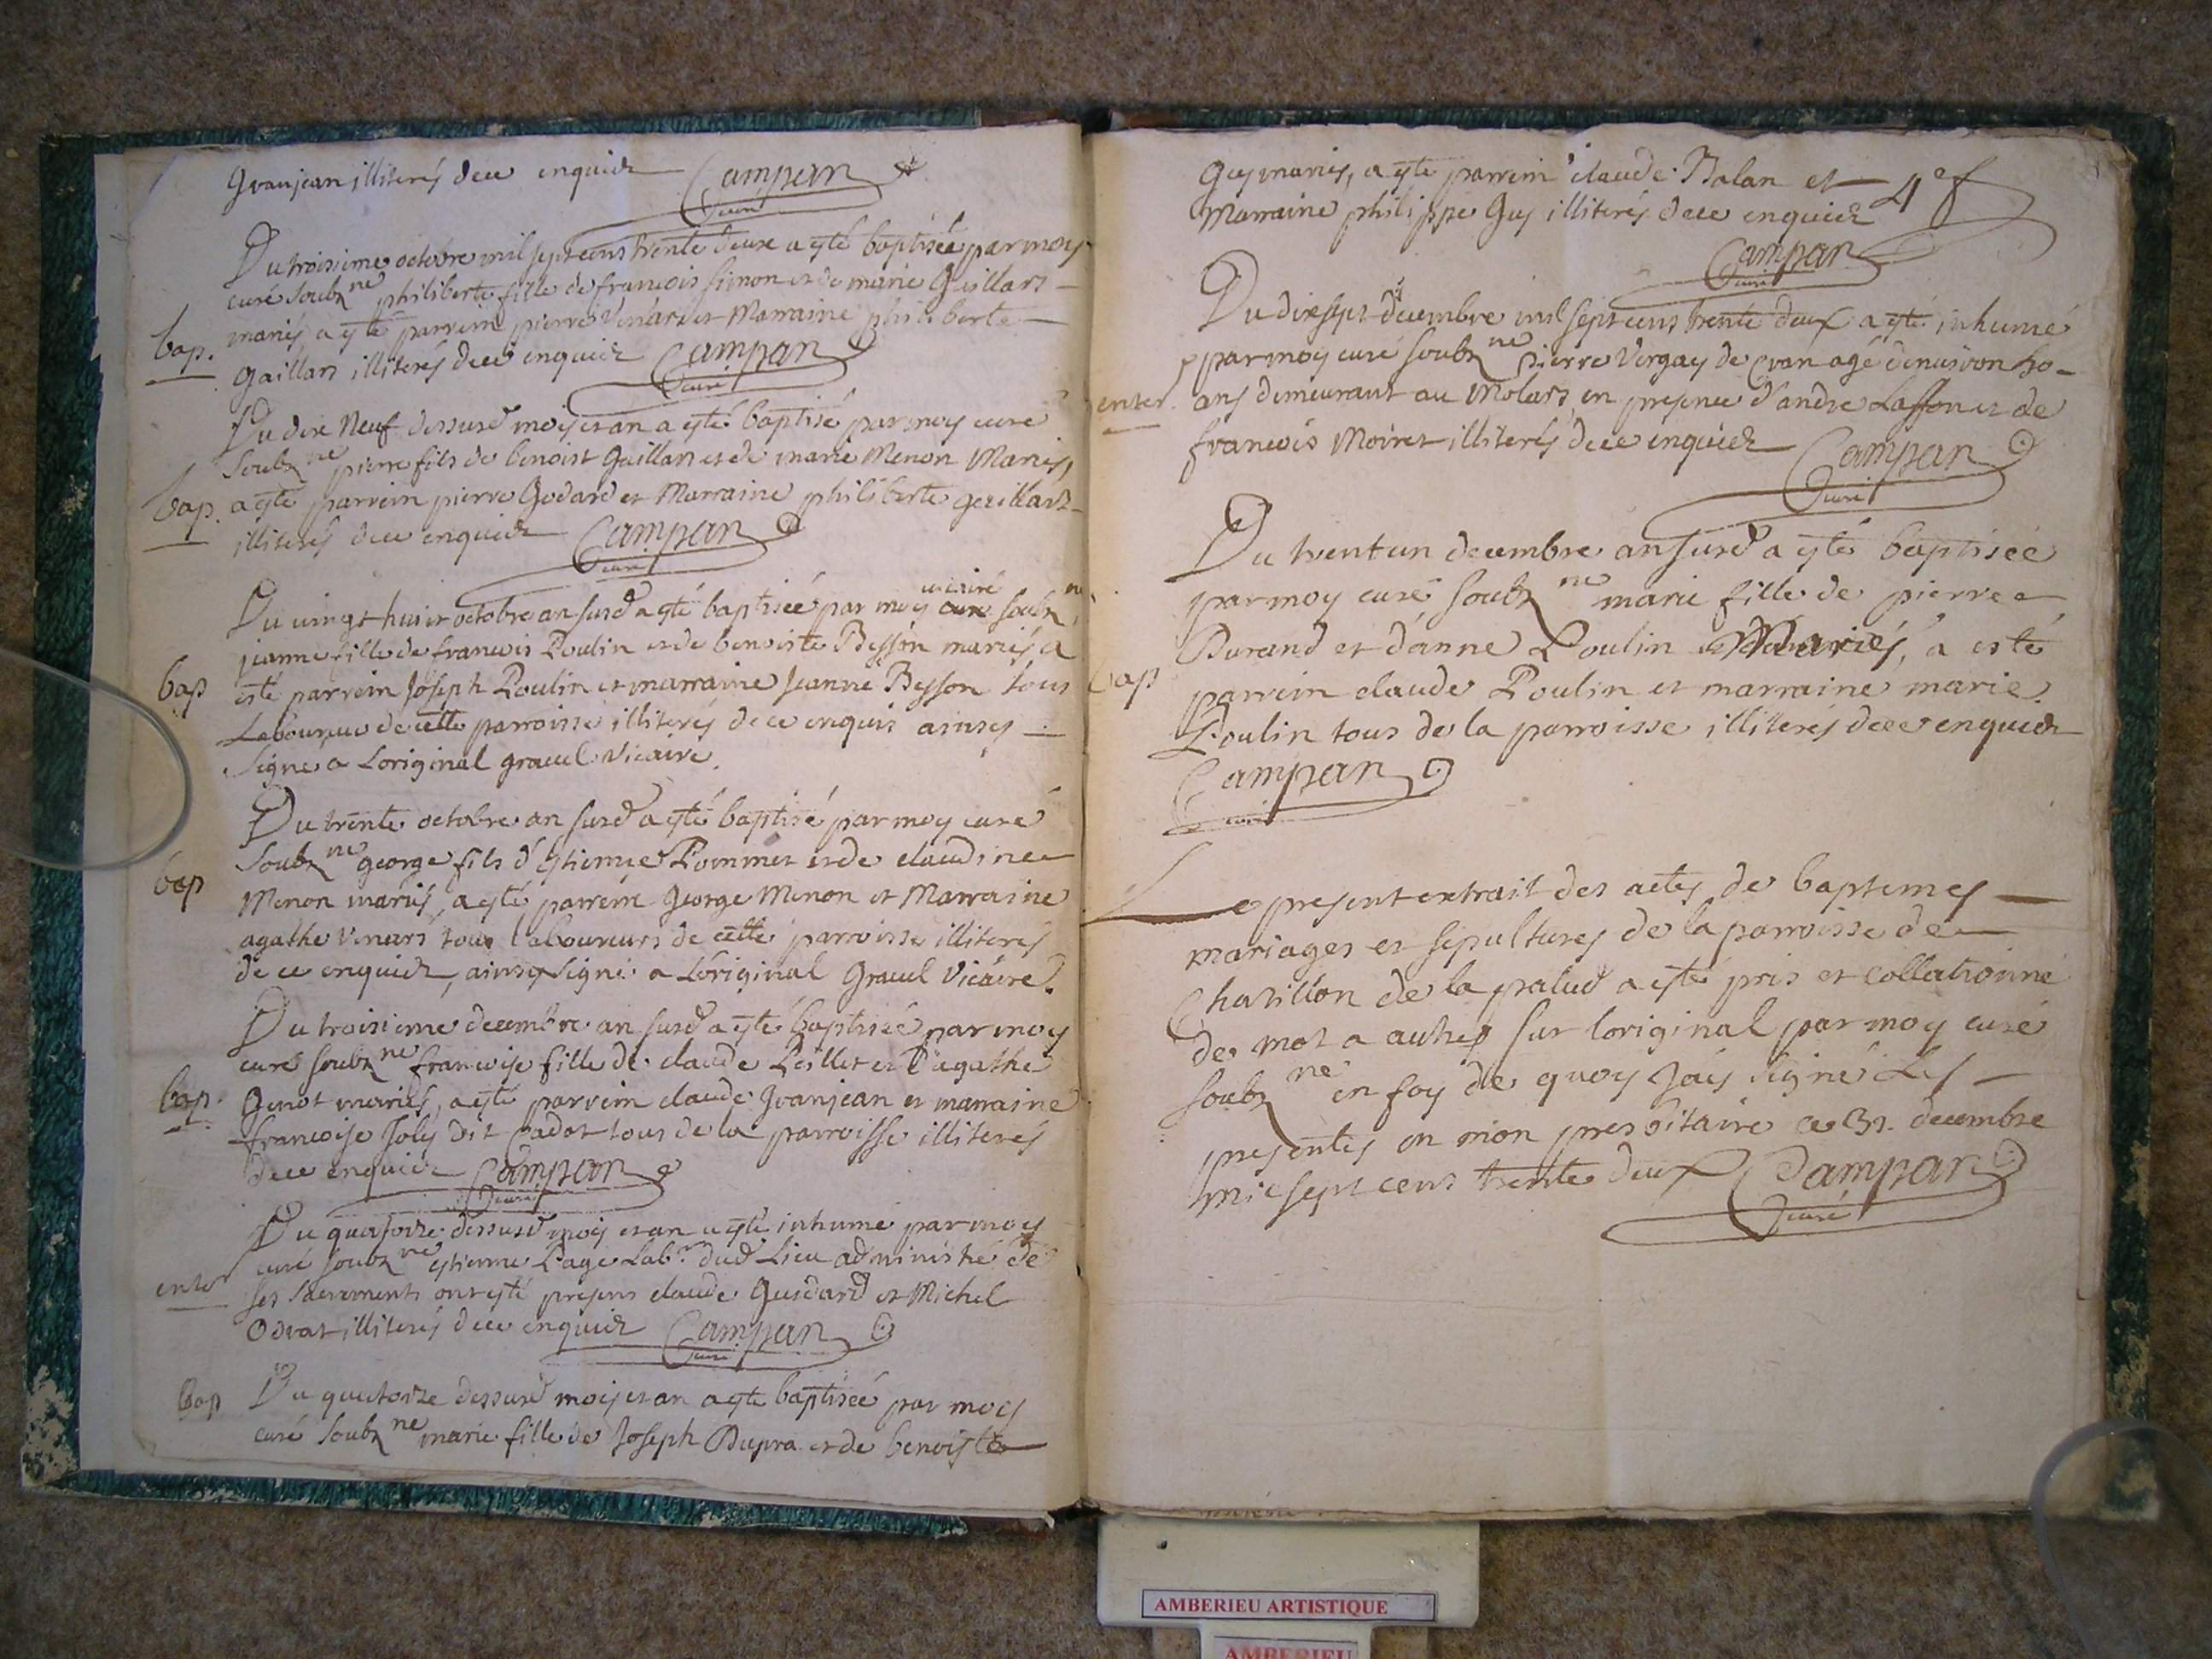 Granjean illiterés dece enquiér Campan
curé
Du troisieme octobre mil sept cens trente deux a esté baptisée par moy
curé soubzne philiberte fille de francois Simon et de marie Guillard
bap. mariés a esté parrein pierre Venard et Marraine philiberte
Gaillard illiterés dece enquier Campan
curé
Du dix Neuf dessusd mois et an a esté baptisé par moy curé
soubzne pierre fils de benoist Gaillard et de marie Menon Mariés,
bap. a esté parrein pierre Godard et Marraine philiberte Gaillard
illiterés dece enquier Campan
curé
Du vingt huict octobre an susd a esté baptisée par moy vicaire soubzne
jeanne fille de francois Poulin et de benoiste Besson mariés a
bap esté parrein Joseph Poulin et marraine Jeanne Besson tous
Laboureur de cette parroisse illiterés de ce enquis ainsy
signe a Loriginal gravel vicaire.
Du trente octobre an susd a esté baptisé par moy curé
soubzne george fils d'estienne Pommier et de claudine
bap Menon mariés, a esté parrein George Menon et Marraine
agathe venard tous laboureurs de cette parroisse illiterés
de ce enquier, ainsy signé a Loriginal Gravel Vicaire.
Du troisieme decembre an susd a esté baptisée par moy
curé soubzne francoise fille de claude Peillet et d'agathe
bap. Genot mariés, a esté parrein claude Granjean et marraine
francoise Joly dit Cadot tous de la parroisse illiterés
dece enquier Campan
curé
Du quatorze dessusd mois et an a esté inhumé par moy
curé soubzne estienne Page Labr. dud Lieu administré de
enter ses sacrements ont esté presens claude Guidard et Michel
Odrat illiterés dece enquier Campan
curé
bap Du quatorze dessusd mois et an a esté baptisée par moy
curé soubzne marie fille de Joseph Dupra et de benoiste
Guy mariés, a esté parrein claude Balan et 4e f
Marraine philippe Guy illiterés dece enquier
Campan
curé
Du dix sept decembre mil sept cens trente deux a esté inhumé
par moy curé soubzne pierre Vergay de Cran agé denviron 50
enter. ans demeurant au Molard en presence d'andre Laffon et de
francois Moiret illiterés dece enquier Campan
curé
Du trent un decembre an susd a esté baptisée
par moy curé soubzne marie fille de pierre
Durand et d'anne Poulin Mariés, a esté
bap parrein claude Poulin et marraine marie
Poulin tous de la parroisse illiterés dece enquier
Campan
curé
Le present extrait des actes de baptemes
mariages et sepultures de la parroisse de
Chatillon de la palud a esté pris et Collationné
de mot a autre sur loriginal par moy curé
soubzne en foy de quoy Jay signé Les
presentes en mon presbitaire ce 31. decembre
mil sept cens trente deux Campan
curé
AMBERIEU ARTISTIQUE
AMBERIEU